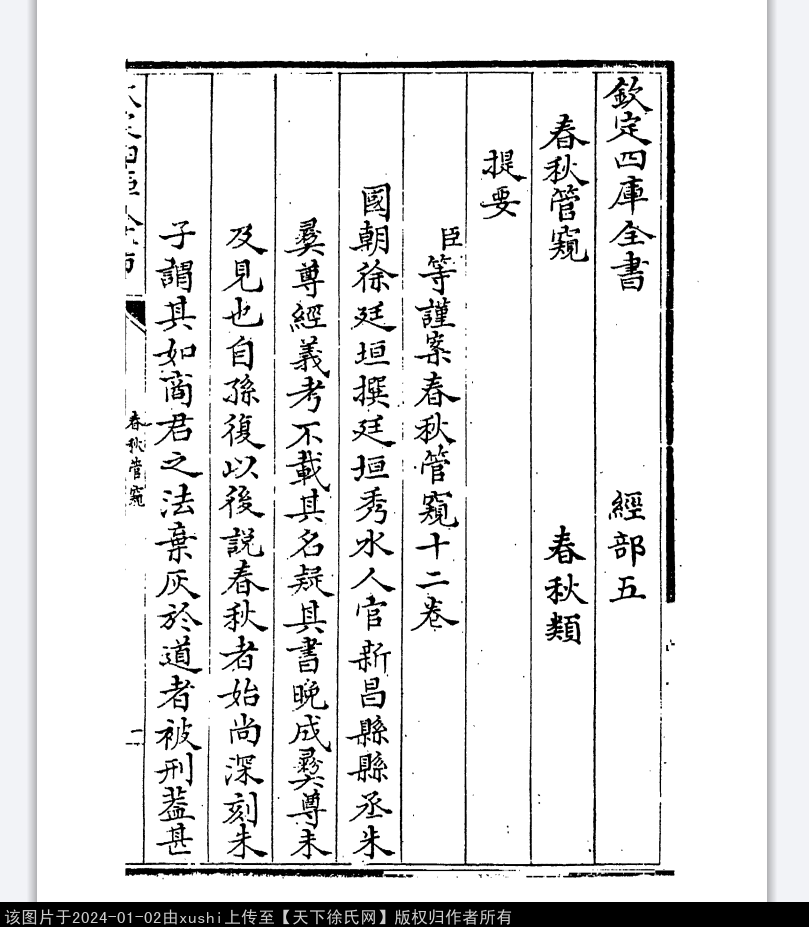 欽定四庫全書 經部五
春秋管窺 春秋類
提要
臣等謹案春秋管窺十二卷
國朝徐廷垣撰廷垣秀水人官新昌縣縣丞朱
彝尊經義考不載其名疑其書晚成彝尊未
及見也自孫復以後説春秋者始尚深刻朱
子謂其如商君之法棄灰於道者被刑葢甚
春秋管窺
該图片于2024-01-02由xushi上传至【天下徐氏网】版权归作者所有